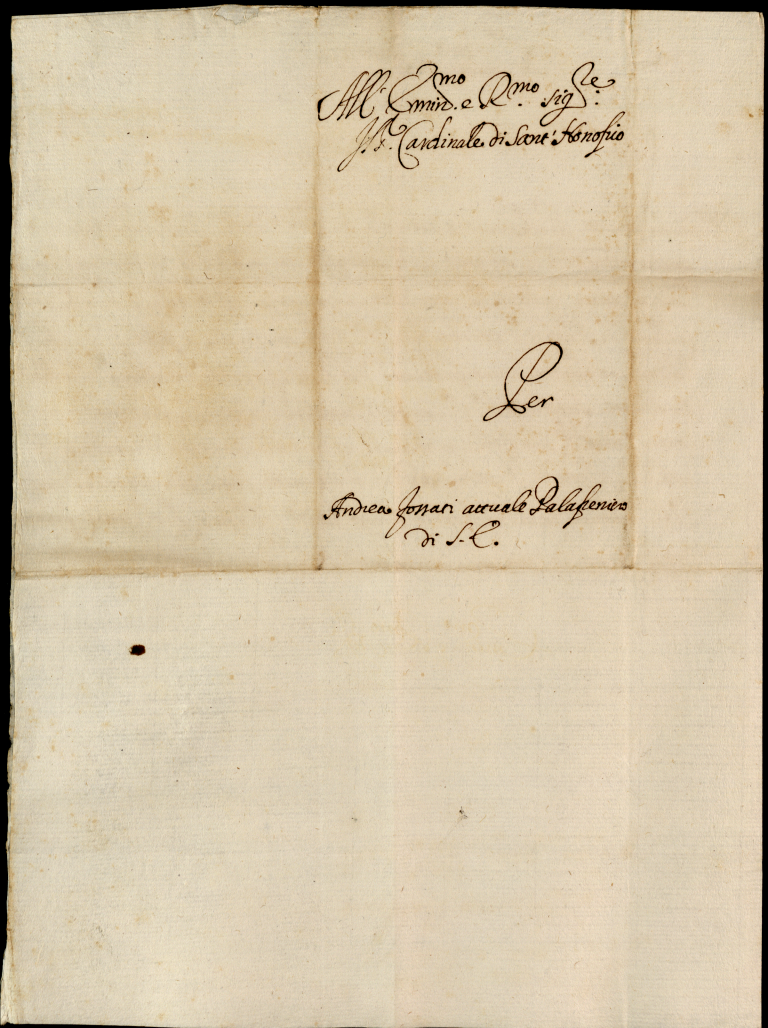 All' Emin.mo e R.mo sig.re
Il Sig.r Cardinale di Sant' Honofrio
Per
Andrea attuale Palafreniero
di S. E.